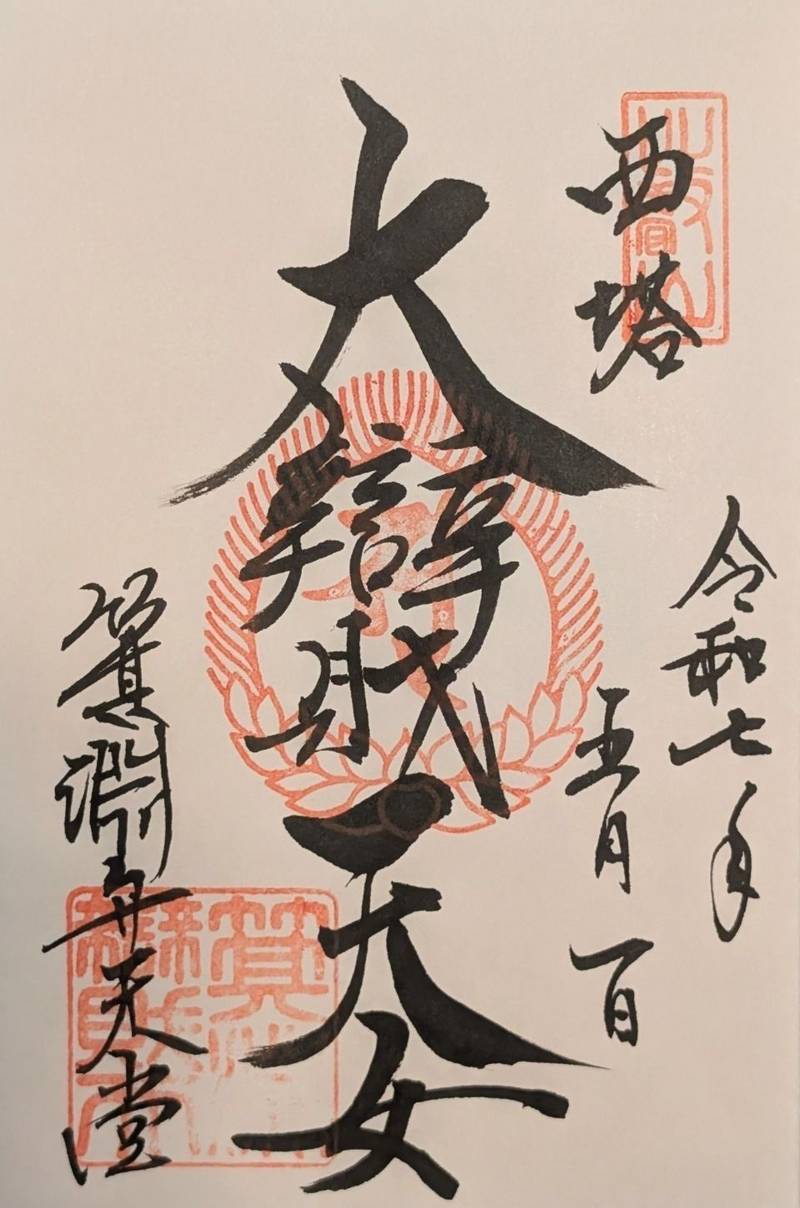 西塔
令和七年
五月一日
大辯財天女
箕淵弁天堂